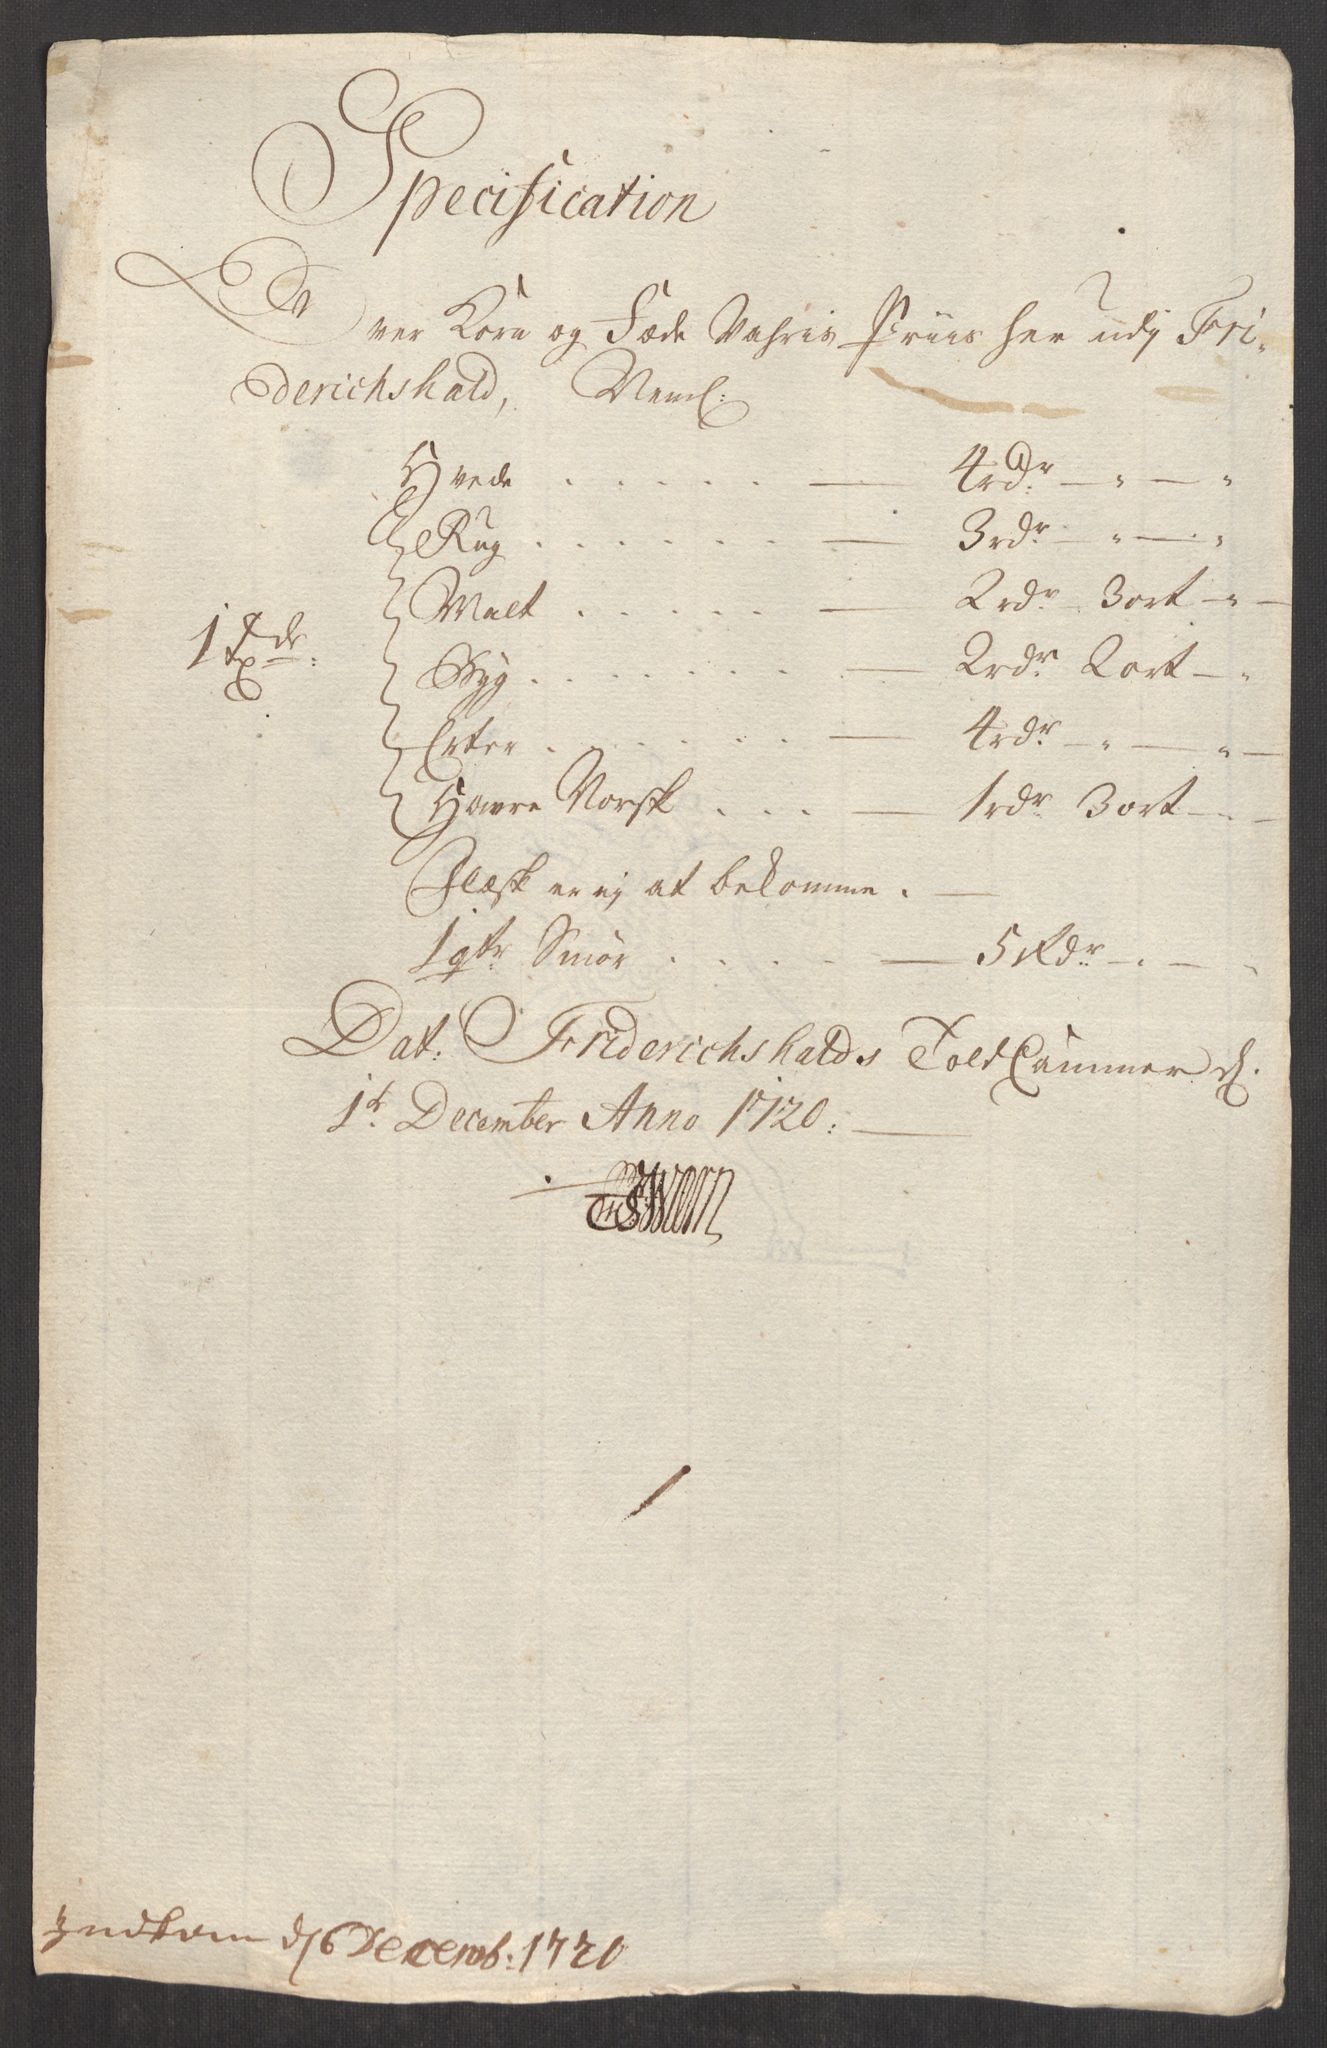 Specification
Over Korn og Føde Vahris Priis her udj Fri-
derichshald, Neml:
Hvede . . . . . — 4 rdr — " — "
Rug . . . . . . — 3 rdr — " — "
Malt . . . . . — 2 rdr 3 ort — " —
1 Tde:
Byg . . . . . . . — 2 rdr 2 ort — "
Erter . . . . . . — 4 rdr — " — " —
Havre Norsk . . . — 1 rdr 3 ort — " —
Flæsk er ej at bekomme . —
1 qtr Smør . . . . . — 5 Rdr — " — "
Dat: Friderichshalds Told Cammer d.
1t December Anno 1720: —
Indkom d 6 Decemb: 1720